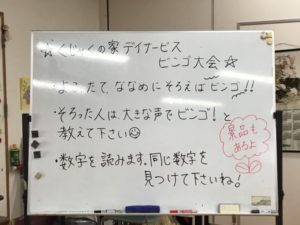 くじゅくの家 デイサービス
ビンゴ大会☆
・よこ、たて、ななめにそろえばビンゴ!!
・そろった人は、大きな声でビンゴ!と
教えて下さい☺
・数字を読みます。同じ数字を
見つけて下さいね!
景品も
あるよ